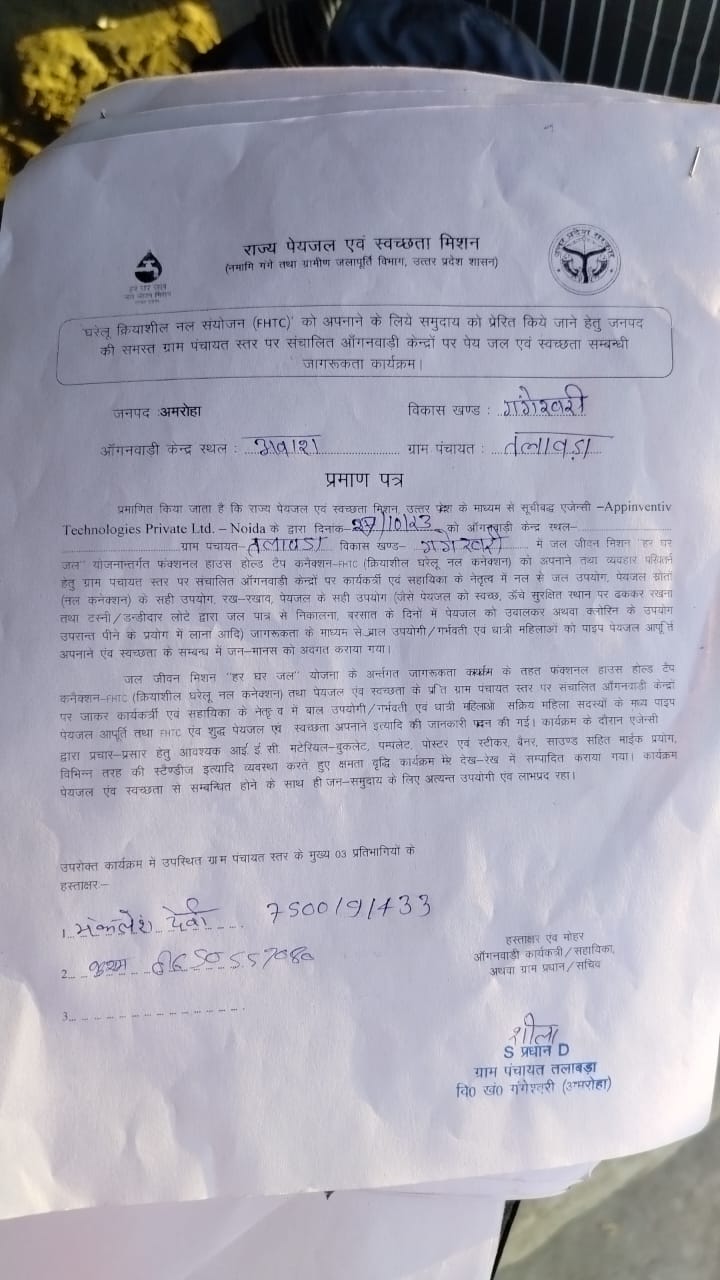 राज्य पेयजल एवं स्वच्छता मिशन
(नमामि गंगे तथा ग्रामीण जलापूर्ति विभाग, उत्तर प्रदेश शासन)
हर घर जल
जल जीवन मिशन
उत्तर प्रदेश सरकार
'घरेलू क्रियाशील नल संयोजन (FHTC)' को अपनाने के लिये समुदाय को प्रेरित किये जाने हेतु जनपद
की समस्त ग्राम पंचायत स्तर पर संचालित आँगनवाड़ी केन्द्रों पर पेय जल एवं स्वच्छता सम्बन्धी
जागरूकता कार्यक्रम।
जनपद :अमरोहा विकास खण्ड : गंगेश्वरी
आँगनवाड़ी केन्द्र स्थल : ग्राम पंचायत : तलावड़ा
प्रमाण पत्र
प्रमाणित किया जाता है कि राज्य पेयजल एवं स्वच्छता मिशन, उत्तर प्रदेश के माध्यम से सूचीबद्ध एजेन्सी –Appinventiv
Technologies Private Ltd. – Noida के द्वारा दिनांक-27/10/23 को आँगनवाड़ी केन्द्र स्थल-
ग्राम पंचायत-तलावड़ा विकास खण्ड- गंगेश्वरी में जल जीवन मिशन "हर घर
जल" योजनान्तर्गत फंक्शनल हाउस होल्ड टैप कनैक्शन-FHTC (क्रियाशील घरेलू नल कनेक्शन) को अपनाने तथा व्यवहार परिवर्तन
हेतु ग्राम पंचायत स्तर पर संचालित आँगनवाड़ी केन्द्रों पर कार्यकर्त्री एवं सहायिका के नेतृत्व में नल से जल उपयोग, पेयजल स्रोतों
(नल कनेक्शन) के सही उपयोग, रख-रखाव, पेयजल के सही उपयोग (जैसे पेयजल को स्वच्छ, ऊँचे सुरक्षित स्थान पर ढककर रखना
तथा टस्नी/डन्डीदार लोटे द्वारा जल पात्र से निकालना, बरसात के दिनों में पेयजल को उबालकर अथवा क्लोरिन के उपयोग
उपरान्त पीने के प्रयोग में लाना आदि) जागरूकता के माध्यम से बाल उपयोगी/गर्भवती एवं धात्री महिलाओं को पाइप पेयजल आपूर्ति
अपनाने एंव स्वच्छता के सम्बन्ध में जन-मानस को अवगत कराया गया।
जल जीवन मिशन "हर घर जल" योजना के अर्न्तगत जागरूकता कार्यक्रम के तहत फंक्शनल हाउस होल्ड टैप
कनैक्शन-FHTC (क्रियाशील घरेलू नल कनेक्शन) तथा पेयजल एंव स्वच्छता के प्रति ग्राम पंचायत स्तर पर संचालित आँगनवाड़ी केन्द्रों
पर जाकर कार्यकर्त्री एवं सहायिका के नेतृत्व में बाल उपयोगी/गर्भवती एवं धात्री महिलाओं सक्रिय महिला सदस्यों के मध्य पाइप
पेयजल आपूर्ति तथा FHTC एंव शुद्ध पेयजल एवं स्वच्छता अपनाने इत्यादि की जानकारी प्रदान की गई। कार्यक्रम के दौरान एजेन्सी
द्वारा प्रचार-प्रसार हेतु आवश्यक आई. ई. सी. मटेरियल-बुकलेट, पम्पलेट, पोस्टर एवं स्टीकर, बैनर, साउण्ड सहित माईक प्रयोग,
विभिन्न तरह की स्टैण्डीज इत्यादि व्यवस्था करते हुए क्षमता वृद्धि कार्यक्रम मेरे देख-रेख में सम्पादित कराया गया। कार्यक्रम
पेयजल एंव स्वच्छता से सम्बन्धित होने के साथ ही जन-समुदाय के लिए अत्यन्त उपयोगी एंव लाभप्रद रहा।
उपरोक्त कार्यक्रम में उपस्थित ग्राम पंचायत स्तर के मुख्य 03 प्रतिभागियों के
हस्ताक्षर:–
1. देवी 7500191433
2.
3.
हस्ताक्षर एंव मोहर
आँगनवाड़ी कार्यकर्त्री/सहायिका,
अथवा ग्राम प्रधान/सचिव
शीला
S प्रधान D
ग्राम पंचायत तलाबड़ा
वि0 खं0 गंगेश्वरी (अमरोहा)